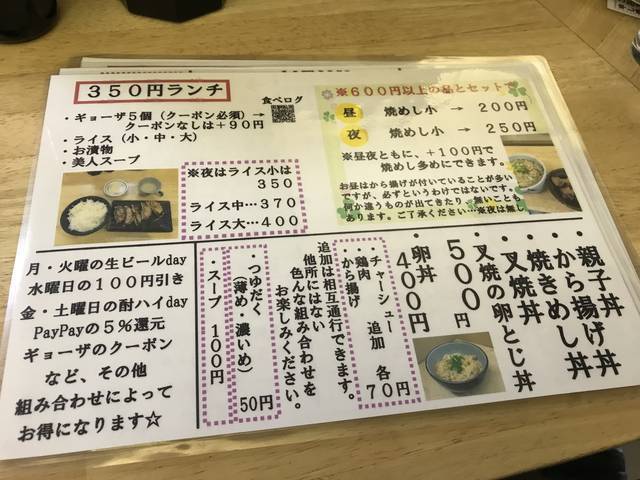 350円ランチ
食べログ
・ギョーザ5個（クーポン必須）→
クーポンなしは＋90円
・ライス（小・中・大）
・お漬物
・美人スープ
※夜はライス小は
350
ライス中…370
ライス大…400
※600円以上の品とセットで
昼 焼めし小 → 200円
夜 焼めし小 → 250円
※昼夜ともに、＋100円で
焼めし多めにできます。
お昼はから揚げが付いていることが多い
ですが、必ずというわけではないです。
何か違うものが出てきたり、無いことも
あります。ご了承ください…※夜は無し
・親子丼
・から揚げ丼
・焼きめし丼
・叉焼丼
・叉焼の卵とじ丼
500円
・卵丼
400円
・チャーシュー
・鶏肉
・から揚げ
追加 各70円
追加は相互通行できます。
他所にはない
色んな組み合わせを
お楽しみください。
・つゆだく
（薄め・濃いめ）
50円
・スープ 100円
月・火曜の生ビールday
水曜日の100円引き
金・土曜日の酎ハイday
PayPayの5％還元
ギョーザのクーポン
など、その他
組み合わせによって
お得になります☆